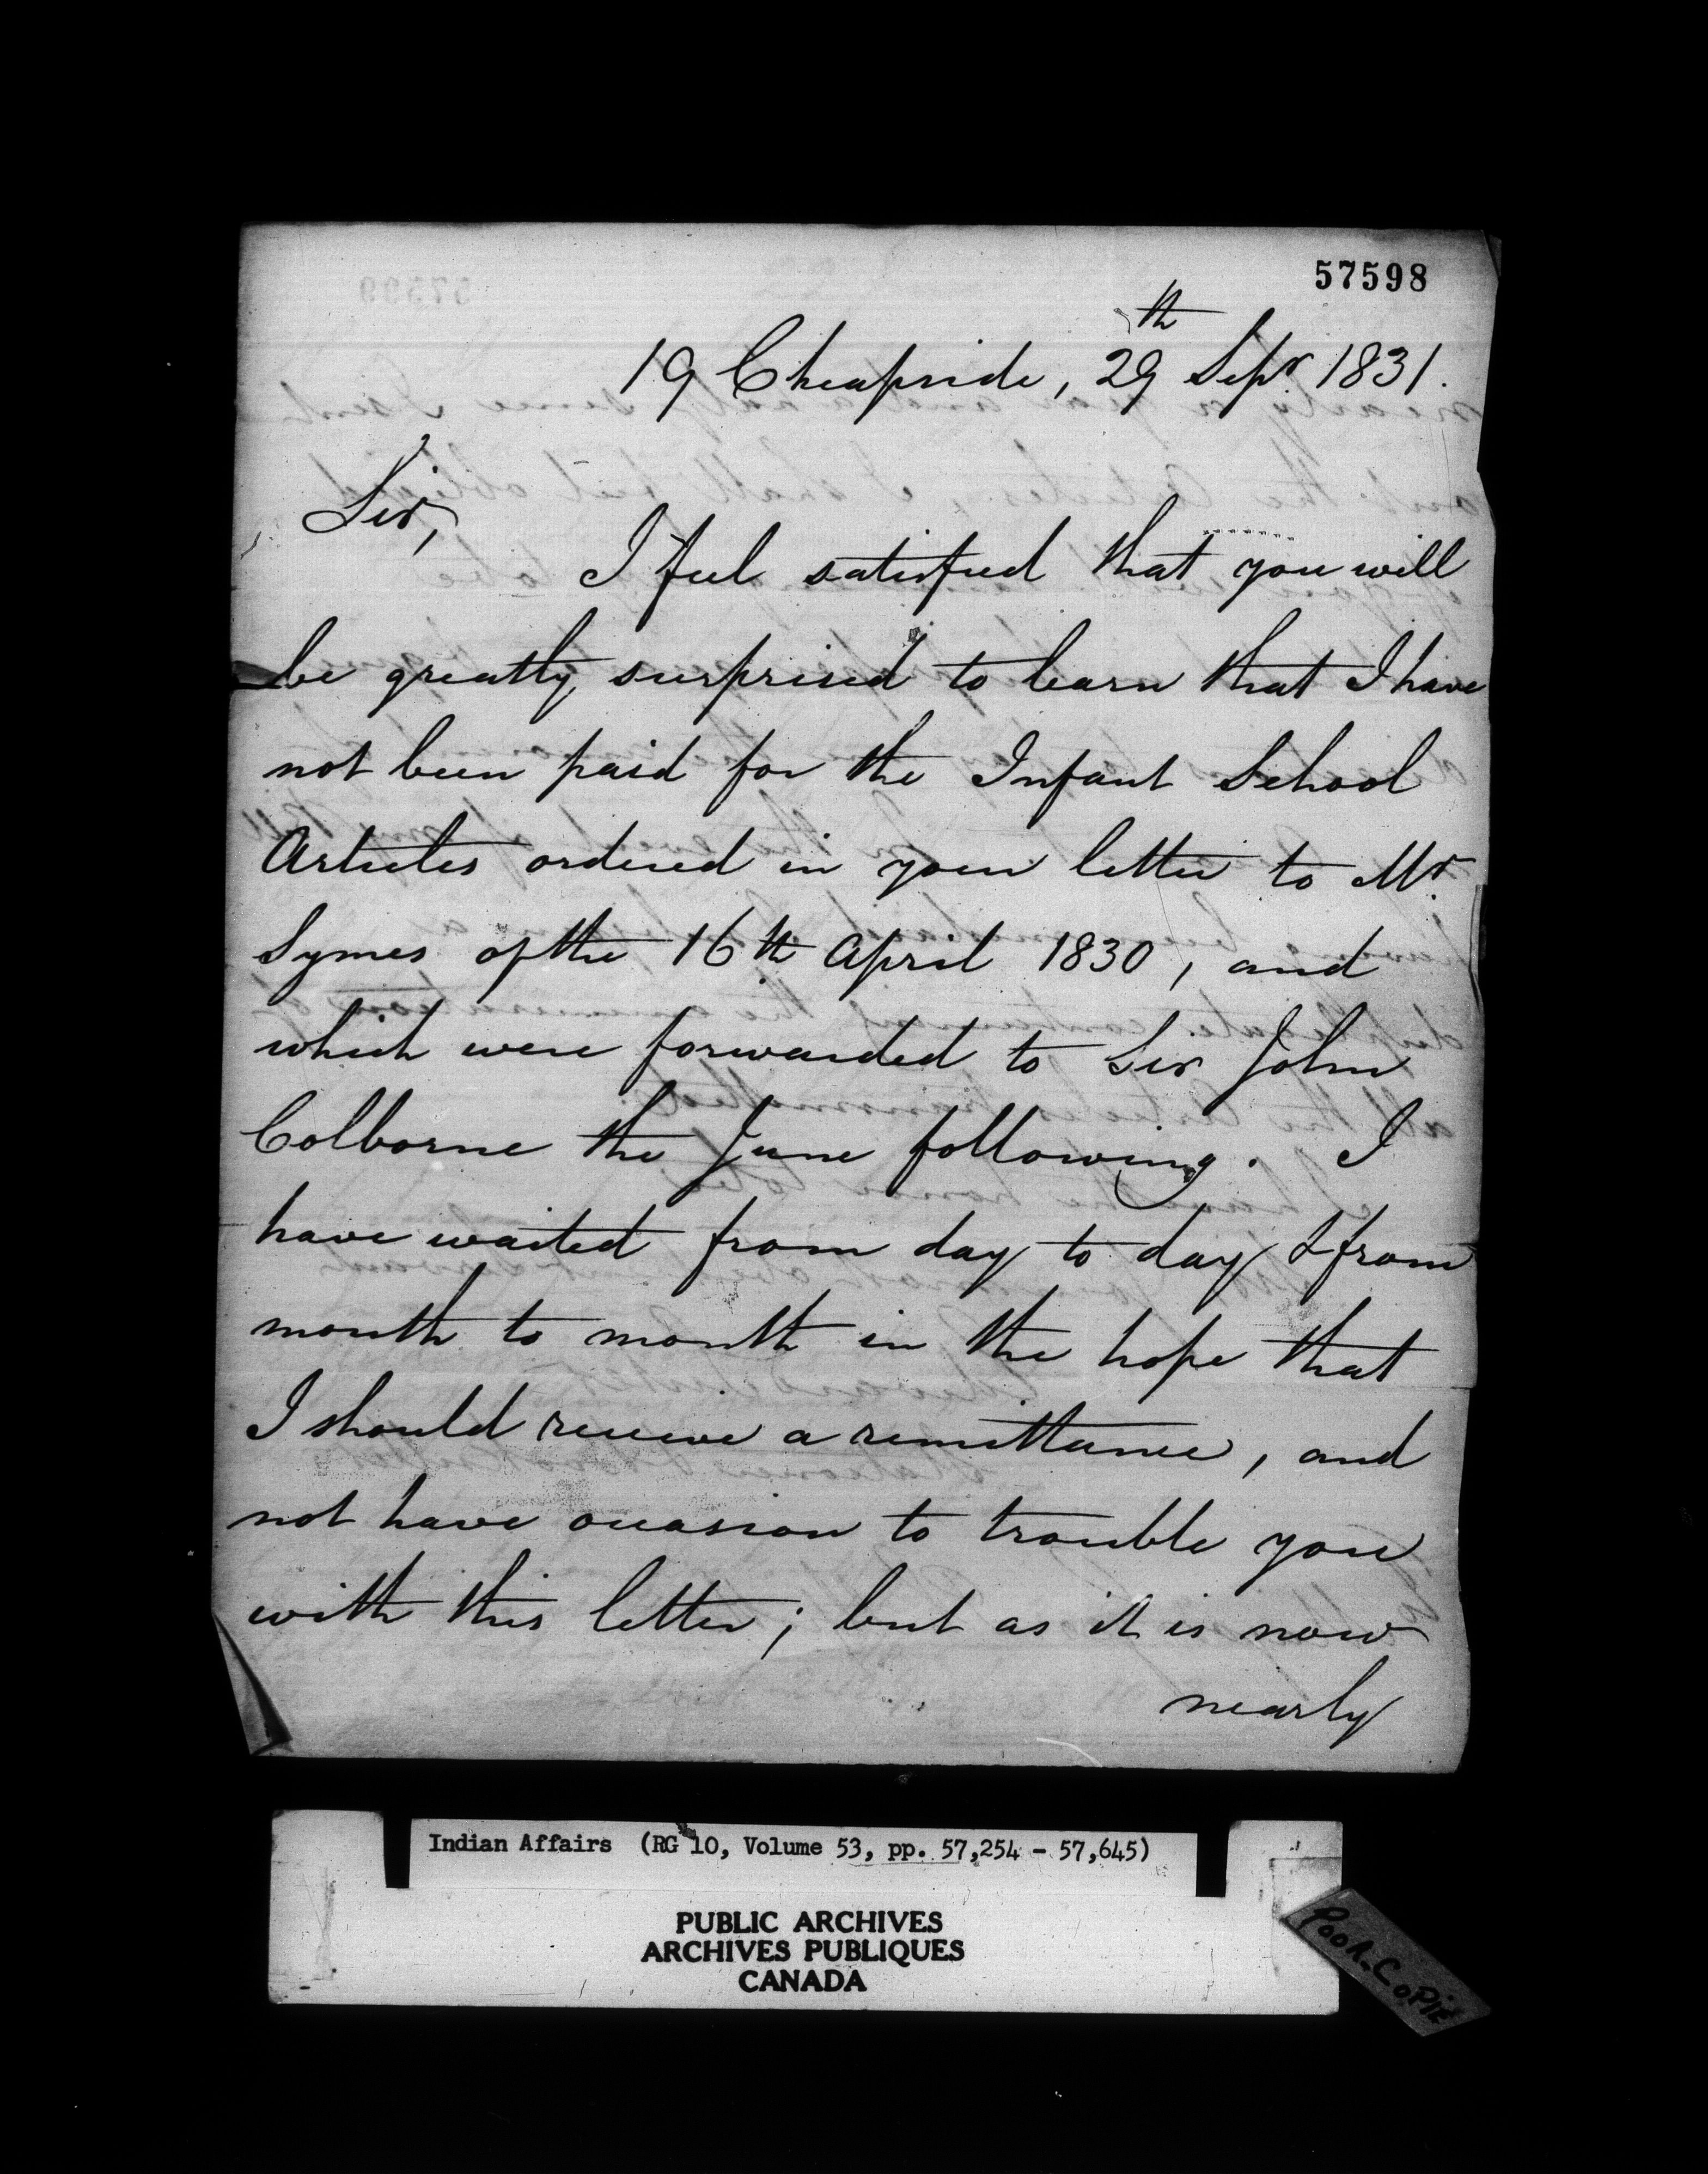 57598
19 Cheapside, 29th Sepr. 1831.
Sir,
I feel satisfied that you will
be greatly surprised to learn that I have
not been paid for the Infant School
Articles ordered in your letter to Mr.
Symes of the 16th April 1830, and
which were forwarded to Sir John
Colborne the June following. I
have waited from day to day & from
month to month in the hope that
I should receive a remittance, and
not have occasion to trouble you
with this letter; but as it is now
nearly
Indian Affairs (RG 10, Volume 53, pp. 57,254 - 57,645)
PUBLIC ARCHIVES
ARCHIVES PUBLIQUES
CANADA
POOR COPIE